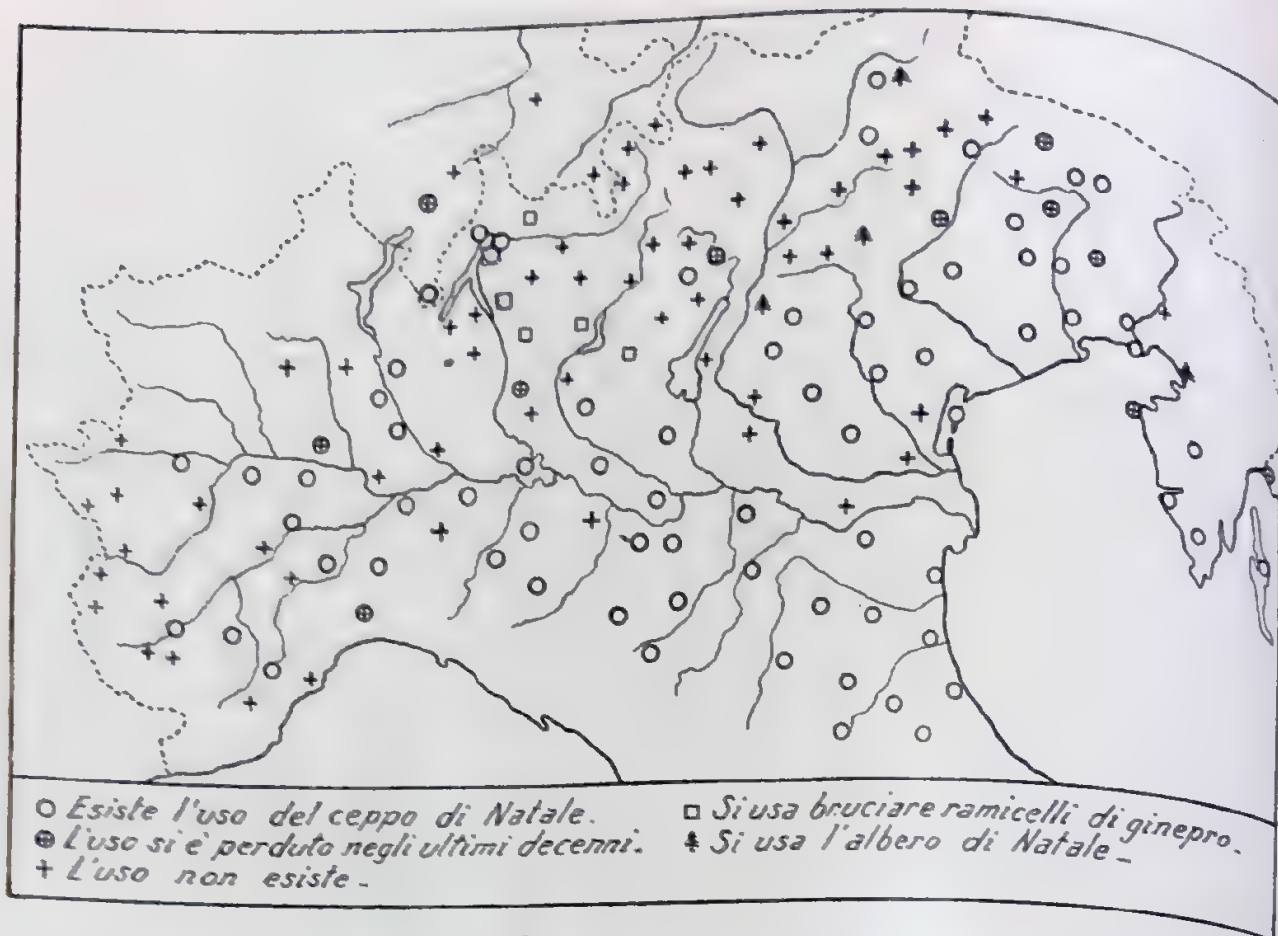 Esiste l'uso del ceppo di Natale.
L'uso si è perduto negli ultimi decenni.
L'uso non esiste -
Si usa bruciare ramicelli di ginepro.-
Si usa l'albero di Natale -